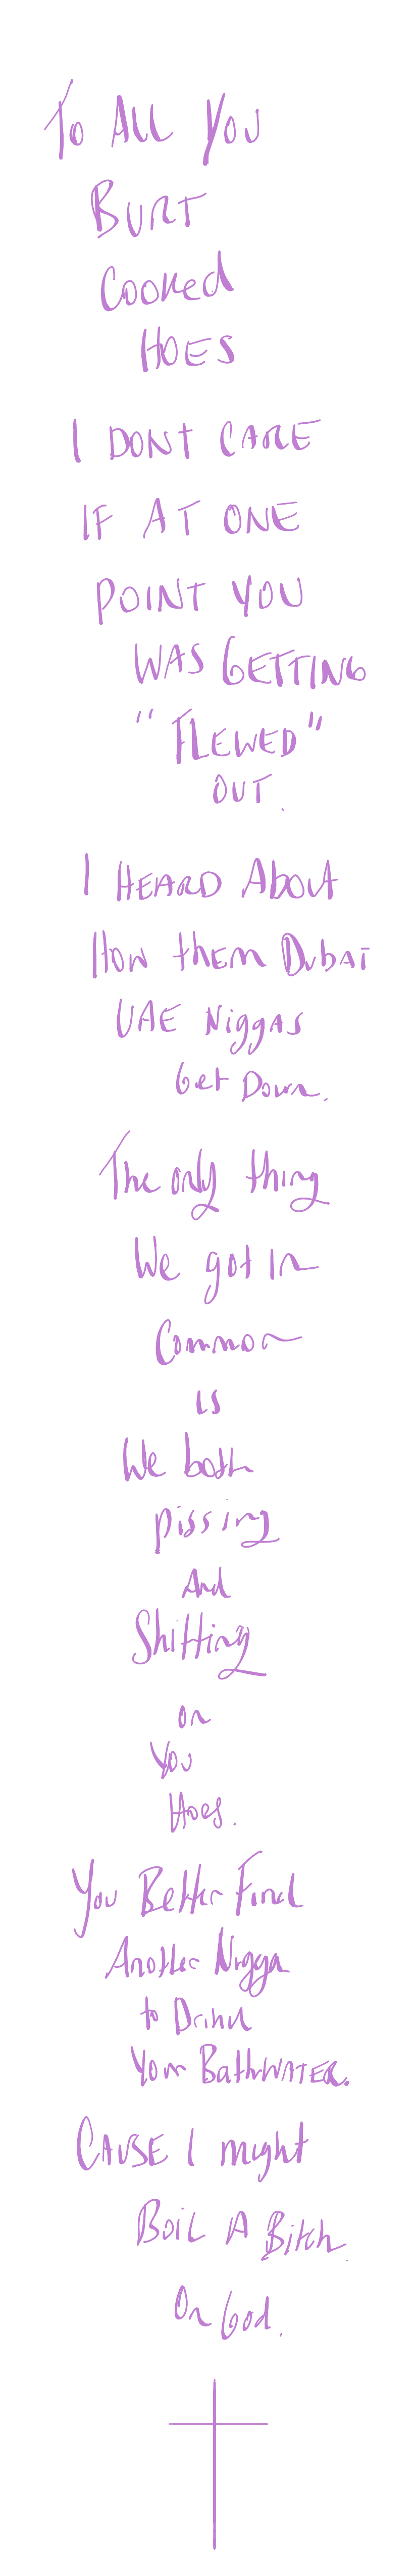 To ALL YOU
BURT
Cooked
HOES
I DONT CARE
IF AT ONE
POINT YOU
WAS GETTING
"FLEWED"
OUT.
I HEARD About
How them Dubai
UAE Niggas
Get Down.
The only thing
We got in
Common
is
We both
pissing
And
Shitting
on
You
Hoes.
You Better Find
Another Nigga
to Drink
Your BathWATER.
CAUSE I might
BOIL A Bitch.
On God.